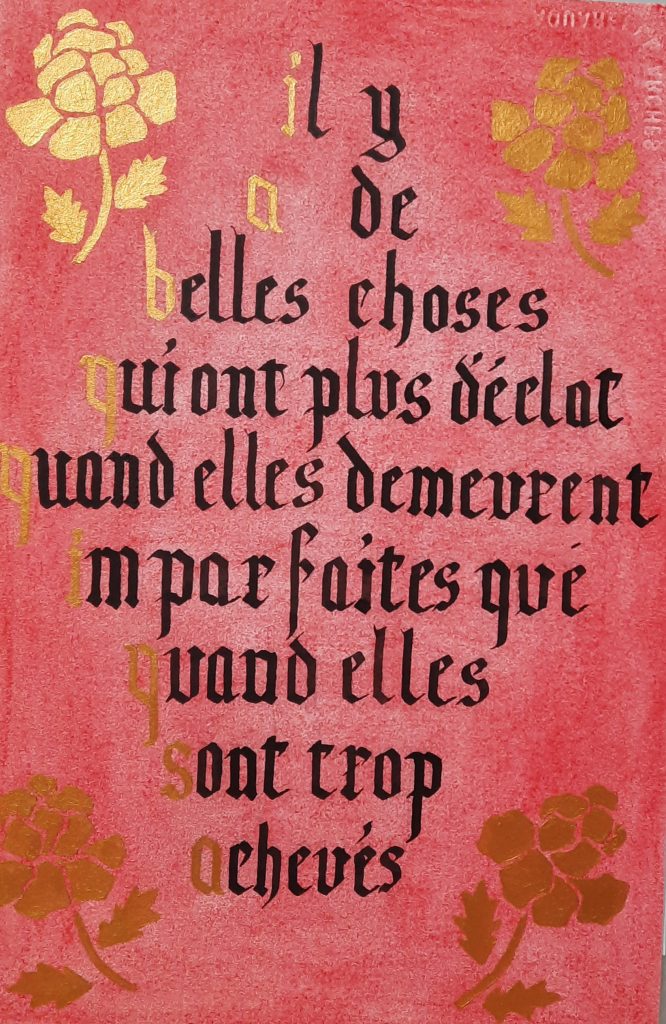 il y
a de
belles choses
qui ont plus d'éclat
quand elles demeurent
imparfaites qué
quand elles
sont trop
achevés
AQUARELLE ARCHES